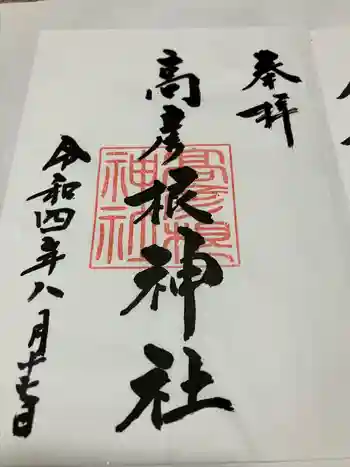 奉拝
高彦根神社
高彦根神社
令和四年八月十七日